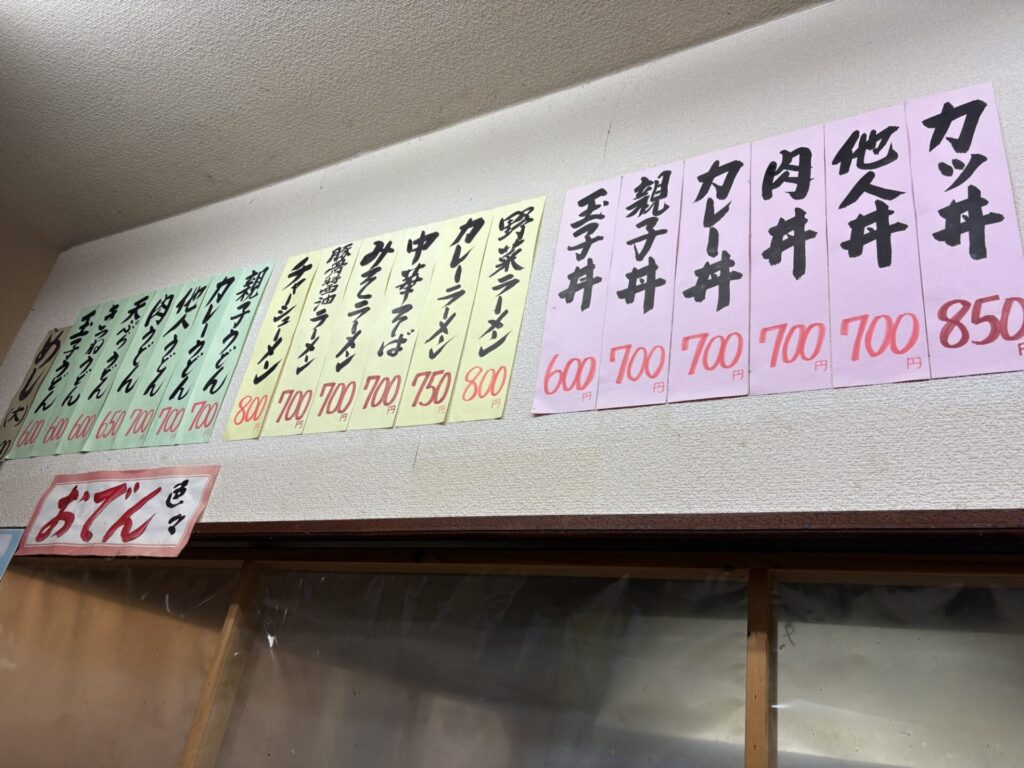 カツ丼
850円
他人丼
700円
肉丼
700円
カレー丼
700円
親子丼
700円
玉子丼
600円
野菜ラーメン
800円
カレーラーメン
750円
中華そば
700円
みそラーメン
700円
豚骨醤油ラーメン
700円
チャーシューメン
800円
親子うどん
700円
カレーうどん
700円
他人うどん
700円
肉うどん
650円
天ぷらうどん
600円
きつねうどん
600円
玉子うどん
600円
めし(大)
おでん
色々